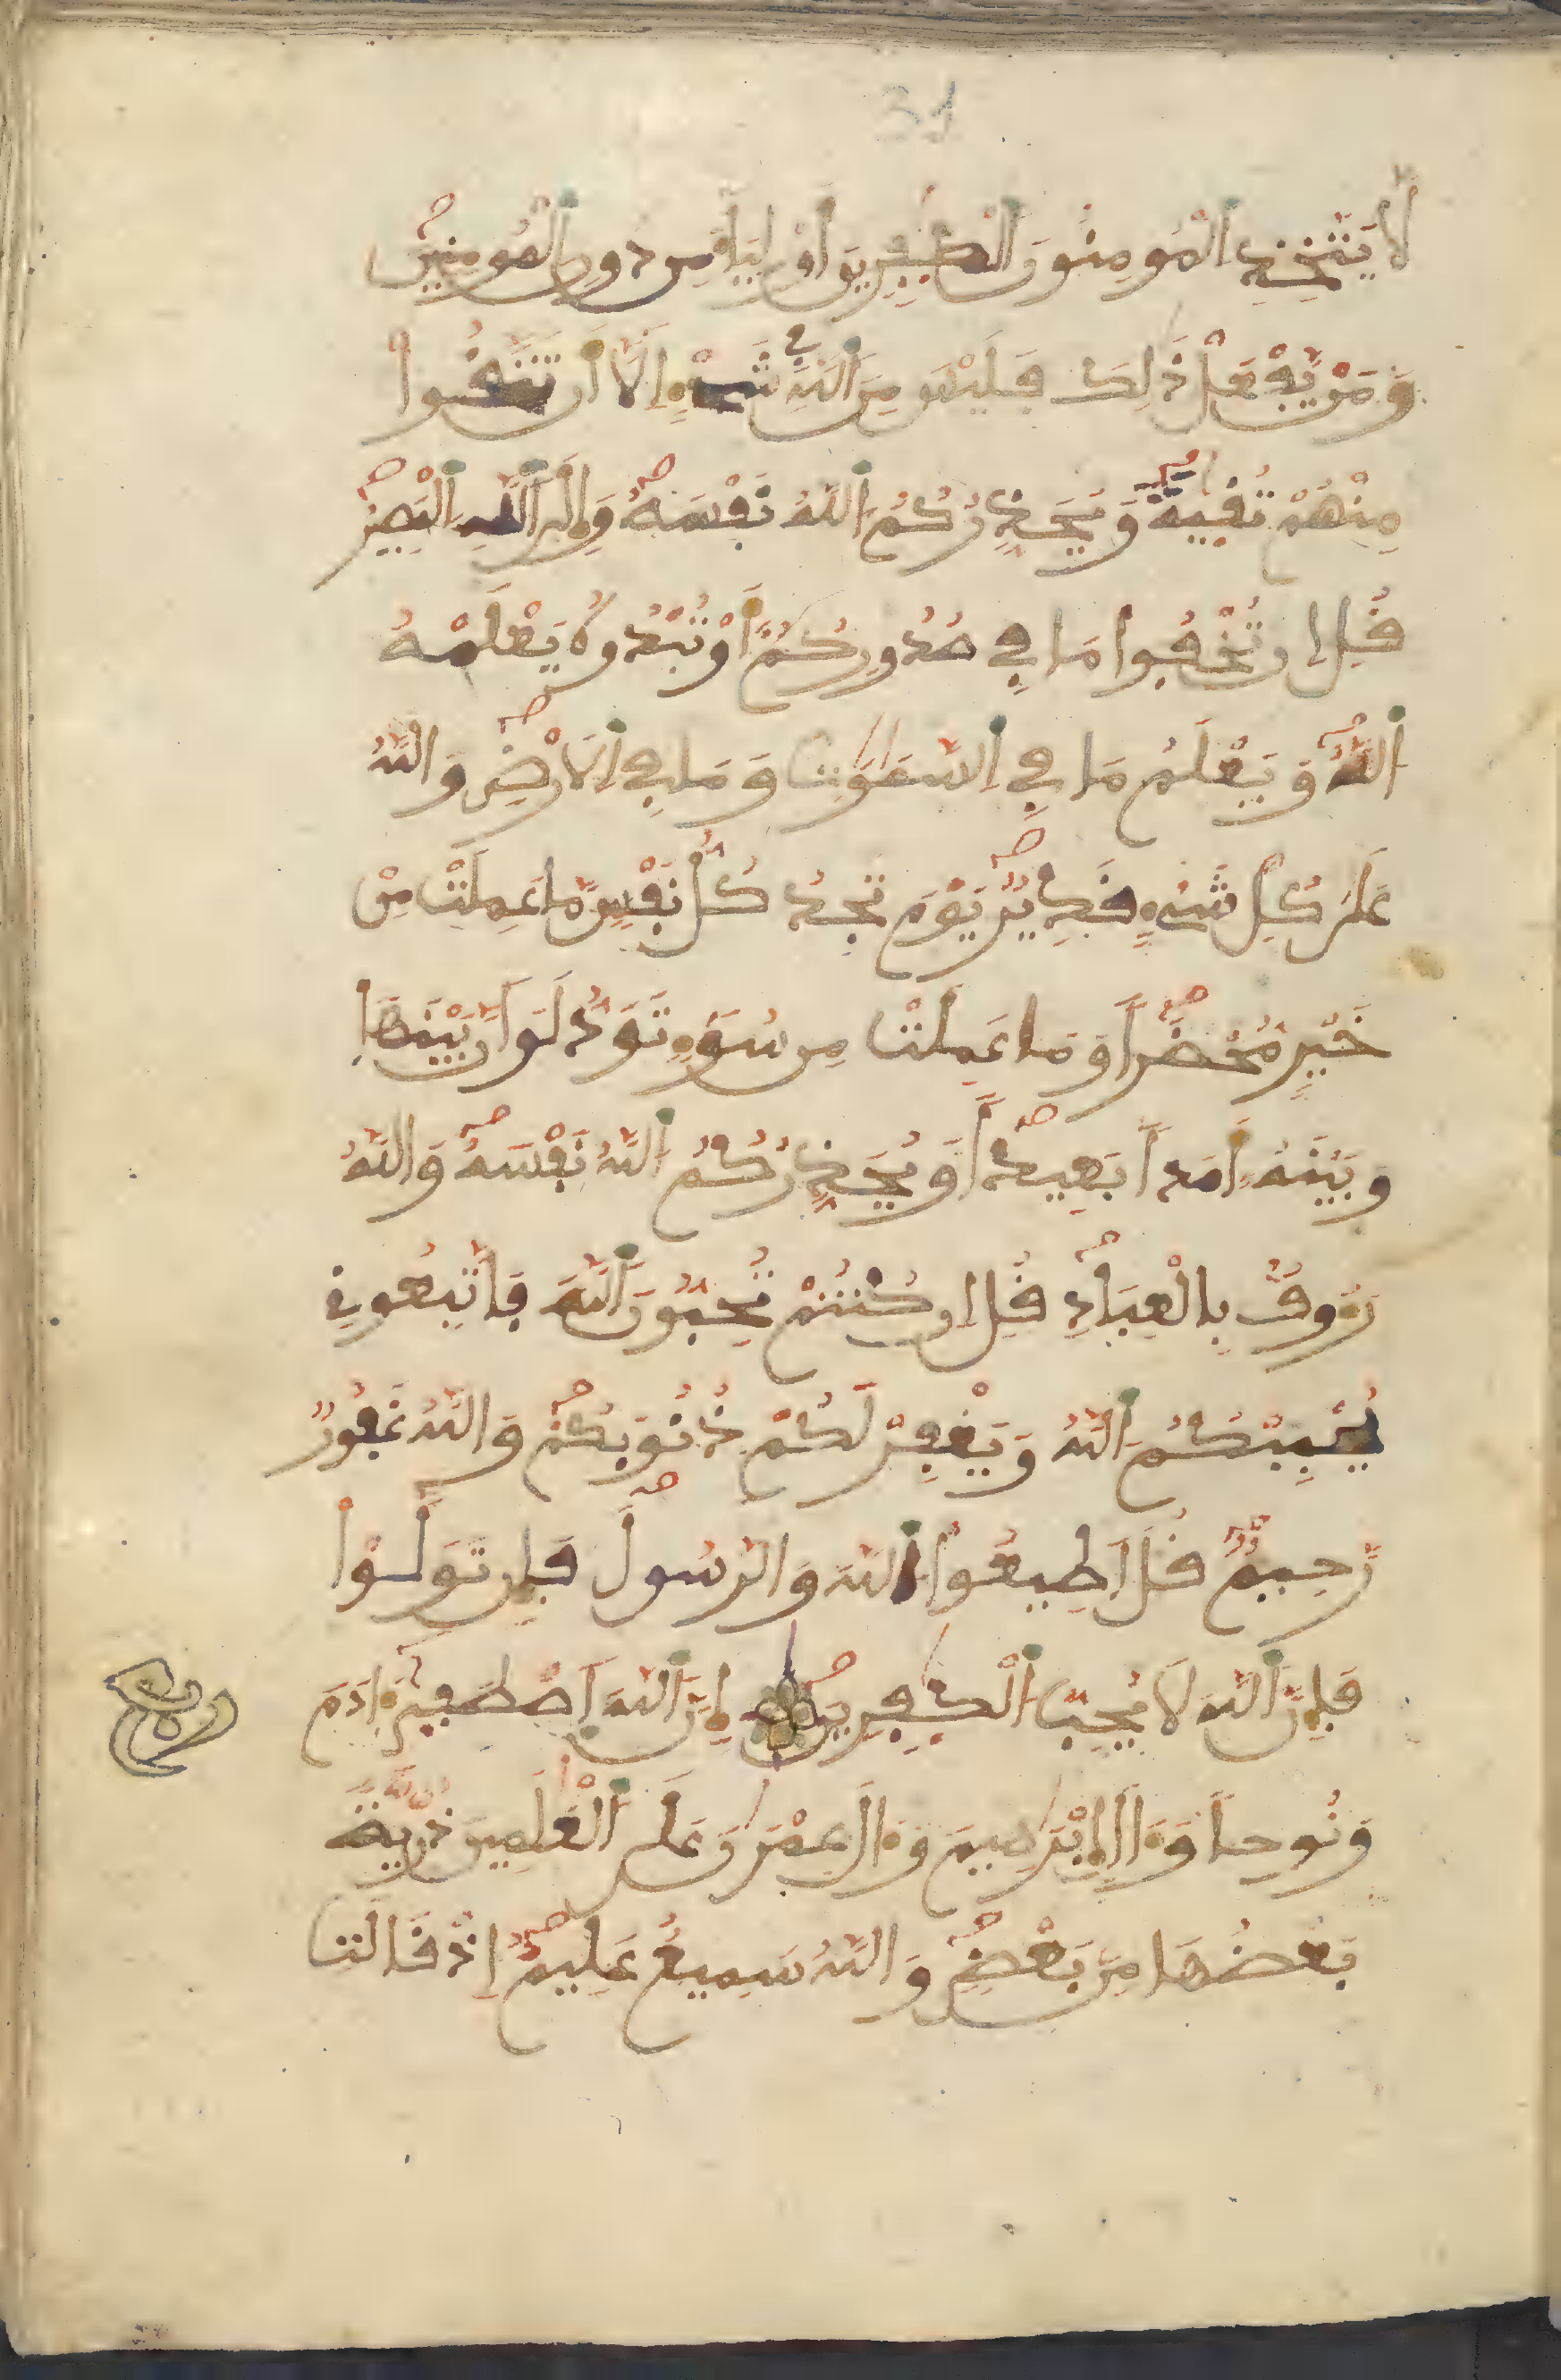 31
لَا يَتَّخِذِ اِ۬لْمُومِنُونَ اَ۬لْكٰفِرِينَ أَوْلِيَآءَ مِن دُونِ اِ۬لْمُومِنِينَ
وَمَنْ يَّفْعَلْ ذَٰلِكَ فَلَيْسَ مِنَ اَ۬للَّهِ فِي شَےْءٍ اِلَّآ أَن تَتَّقُوا
مِنْهُمْ تُقٰيةً وَيُحَذِّرُكُمُ اُ۬للَّهُ نَفْسَهُ وَإِلَى اَ۬للَّهِ اِ۬لْمَصِيرُ
قُلِ اِن تُخْفُوا مَا فِي صُدُورِكُمُ أَوْ تُبْدُوهُ يَعْلَمْهُ
اُ۬للَّهُ وَيَعْلَمُ مَا فِي اِ۬لسَّمَٰوَٰتِ وَمَا فِي اِ۬لَارْضِ وَاللَّهُ
عَلَىٰ كُلِّ شَےْءٍ قَدِيرٌ يَوْمَ تَجِدُ كُلُّ نَفْسٍ مَّا عَمِلَتْ مِنْ
خَيْرٍ مُّحْضَراً وَمَا عَمِلَتْ مِن سُوٓءٍ تَوَدُّ لَوَ اَنَّ بَيْنَهَا
وَبَيْنَهُ أَمَداً بَعِيداً وَيُحَذِّرُكُمُ اُ۬للَّهُ نَفْسَهُ وَاللَّهُ
رَءُوفٌ بِالْعِبَادِ قُلِ اِن كُنتُمْ تُحِبُّونَ اَ۬للَّهَ فَاتَّبِعُونِي
يُحْبِبْكُمُ اُ۬للَّهُ وَيَغْفِرْ لَكُمْ ذُنُوبَكُمْ وَاللَّهُ غَفُورٌ
رَّحِيمٌ قُلَ اَطِيعُوا اُ۬للَّهَ وَالرَّسُولَ فَإِن تَوَلَّوْا
فَإِنَّ اَ۬للَّهَ لَا يُحِبُّ اُ۬لْكٰفِرِينَ إِنَّ اَ۬للَّهَ اَ۪صْطَفىٰٓ ءَادَمَ
وَنُوحاً وَءَالَ إِبْرَٰهِيمَ وَءَالَ عِمْرَٰنَ عَلَى اَ۬لْعَٰلَمِينَ ذُرِّيَّةً
بَعْضُهَا مِنۢ بَعْضٍ وَاللَّهُ سَمِيعٌ عَلِيمٌ اِذْ قَالَتِ